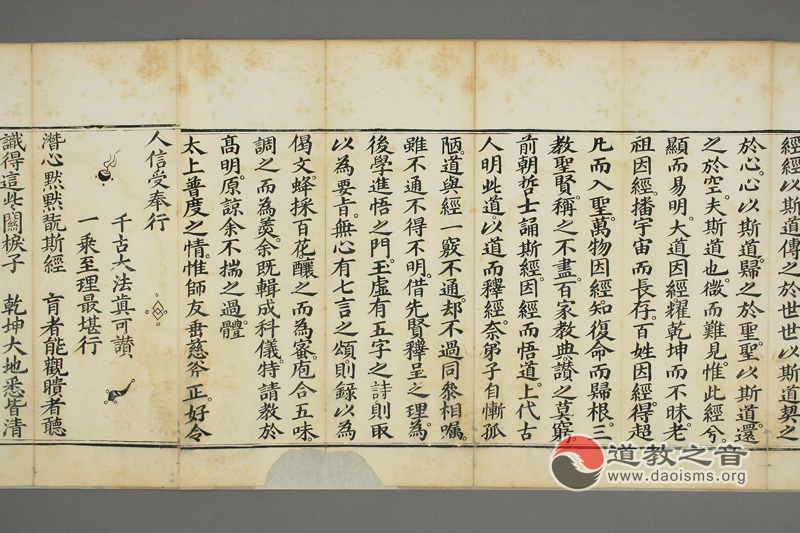 經經以斯道傳之於世世以斯道契之
於心。心以斯道歸之於聖。聖以斯道還
之於空。夫斯道也。微而難見。惟此經兮。
顯而易明。大道因經。耀乾坤而不昧。老
祖因經。播宇宙而長存。百姓因經。得超
凡而入聖。萬物因經。知復命而歸根。三
教聖賢。稱之不盡。百家教典。讚之莫窮。
前朝哲士。誦斯經。因經而悟道。上代古
人。明此道。以道而釋經。奈弟子自慚孤
陋。道與經一竅不通。却不過同叅相囑。
雖不通不得不明。借先賢釋呈之理。為
後學進悟之門。玉虛有五字之詩。則取
以為要旨。無心有七言之頌。則錄以為
偈文。蜂採百花。釀之而為蜜。庖合五味。
調之而為羹。余既輯成科儀。特請教於
高明。原諒余不揣之過。體
太上普度之情。惟師友垂慈斧正。好令
人信受奉行
千古大法眞可讚
一乘至理最堪行
潛心黙黙翫斯經 肓者能觀聵者聽
識得這些關棙子 乾坤大地悉皆清
道教之音
www.daoisms.org